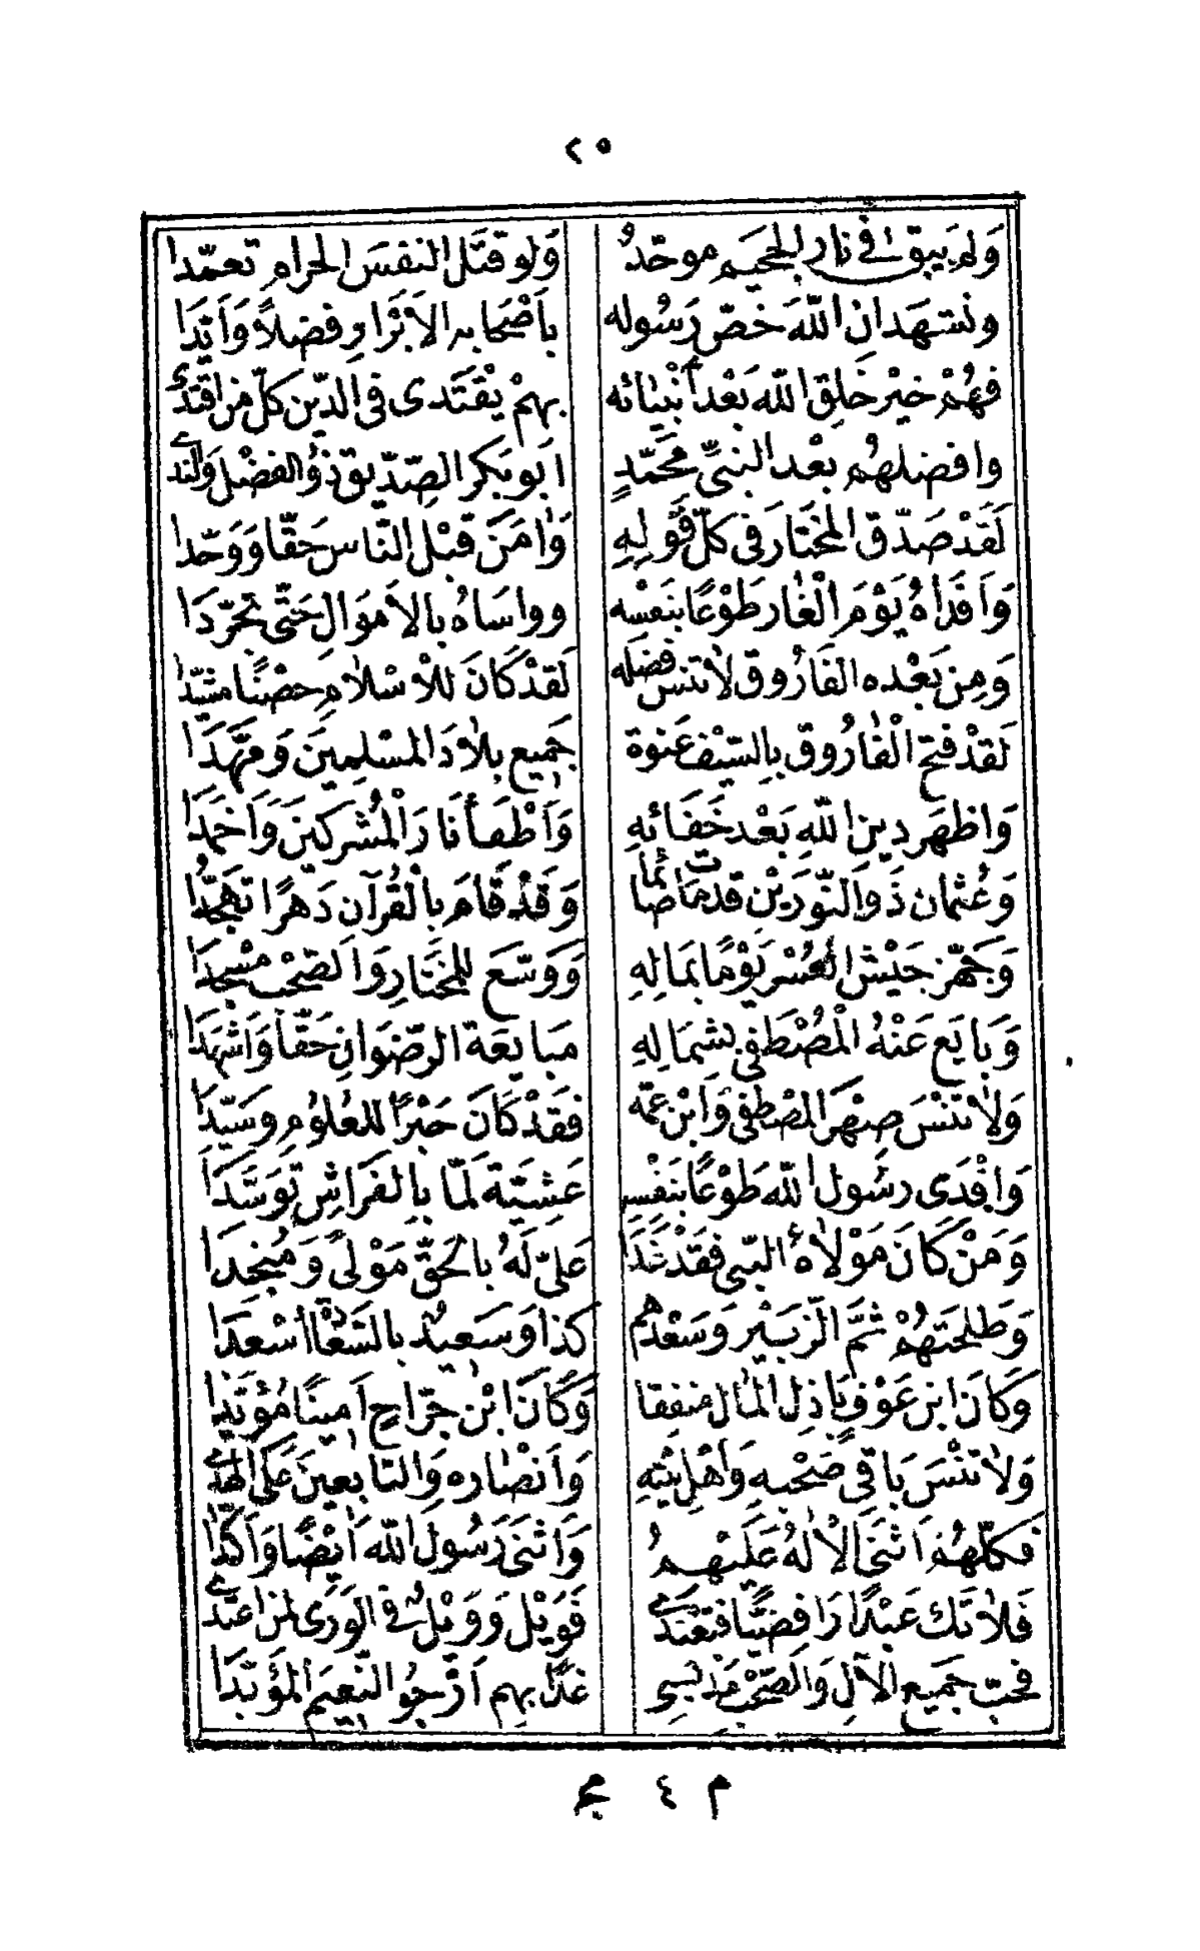 ٢٥
وَلَم يَبقَ فِي نارِ الجَحيمِ موحّدٌ وَلَو قَتَل النفسَ الحرامِ تعمّدا
ونشهَد ان اللّهَ خصّ رَسُوله بأَصْحابه الاَبْرَارِ فضلاً وَأَيّدَا
فهُمْ خيْر خَلِق اللّه بَعْد أنْبيائه بهِمْ يَقْتَدى فى الدّين كلّ من اقتدى
وافضلهُم بعْد النبيِّ محَمّدٍ ابوبَكر الصّدّيق ذُو الفضْل وَالندى
لَقَدْ صَدّق المُختَارَ فى كلّ قَولِهِ وَاٰمَنَ قبْل النّاس حَقّا وَوَحّدا
وَاَفدَاهُ يَوْمَ الْغار طَوْعًا بنَفسْه وواسَاهُ بالاَموَال حَتّى تجرّدَا
وَمِن بَعْده الفَاروق لاتنس فضله لَقدْ كَانَ للاْسْلامِ حصْنًا مشيّدا
لَقدْ فتح الْفَارُوق بِالسّيْف عَنوة جَميع بلادَ المسْلِمِينَ وَمَهَّدَا
وَاظهَر دين اللّهِ بَعْد خَفَائهِ وَأَطْفأ نَارَ الْمُشركينَ وَاَخمَدَا
وَعُثمان ذَوالنّورَيْن قدمَات صَائما وَقدْ قَامَ بالْقُرآن دَهرًا تهَجّدا
وَجَهّز جَيْش العُسْر يَوْمًا بمَالِهِ وَوَسّعَ للمختَارِ وَالصّحْب مسْجدَا
وَبَايَع عَنْهُ الْمُصْطَفى بشِمَالِهِ مَبايَعَة الرّضوَانِ حَقّاً وَاَشْهَدَا
وَلاتَنْسَ صِهْرَ المصْطفى وَابْن عمّه فقَدْ كَانَ حَبْرًا للعُلوُمِ وسَيّدَا
وَافْدَى رسُول اللّه طَوْعًا بنَفْسِ عَشِيّة لَمّا بِالفَرَاشِ تَوَسّدَا
وَمَنْ كَانَ مَوْلاهُ النّبى فقَدْ غَدَا عَلىّ لَهُ بالحَقّ مَوْلىً وَمُنجِدَا
وَطَلحَتهُمْ ثمّ الزّبَيْر وَسَعْدهم كذا وَسَعيدٌ بالسّعَادة أسْعَدَا
وَكَانَ ابن عَوْفٍ بَاذِل المَال منفِقا وَكَانَ ابْن جرّاحٍ اَمينًا مُؤَيّدا
وَلاتنْسَ بَاقي صَحْبهِ وَأَهْلِ بَيْتِهِ وَأَنصَاره وَالتّابعينَ عَلَى الهُدى
فكلّهُم اَثنى الْالهُ عَلَيْهمُ وَاَثنَى رَسُولُ اللّه اَيْضًا وَاَكّدَا
فَلاتَك عَبْدًا رَافضِيًّا فتعتَدى فَوَيْل وَوَيْلٌ فى الوَرَى لمن اعتَدى
فحبّ جَميع الآلِ وَالصّحْب مَذهَبى غدًا بهِم اَرْجُو النّعيَم المؤَبّدَا
م ٤ مج